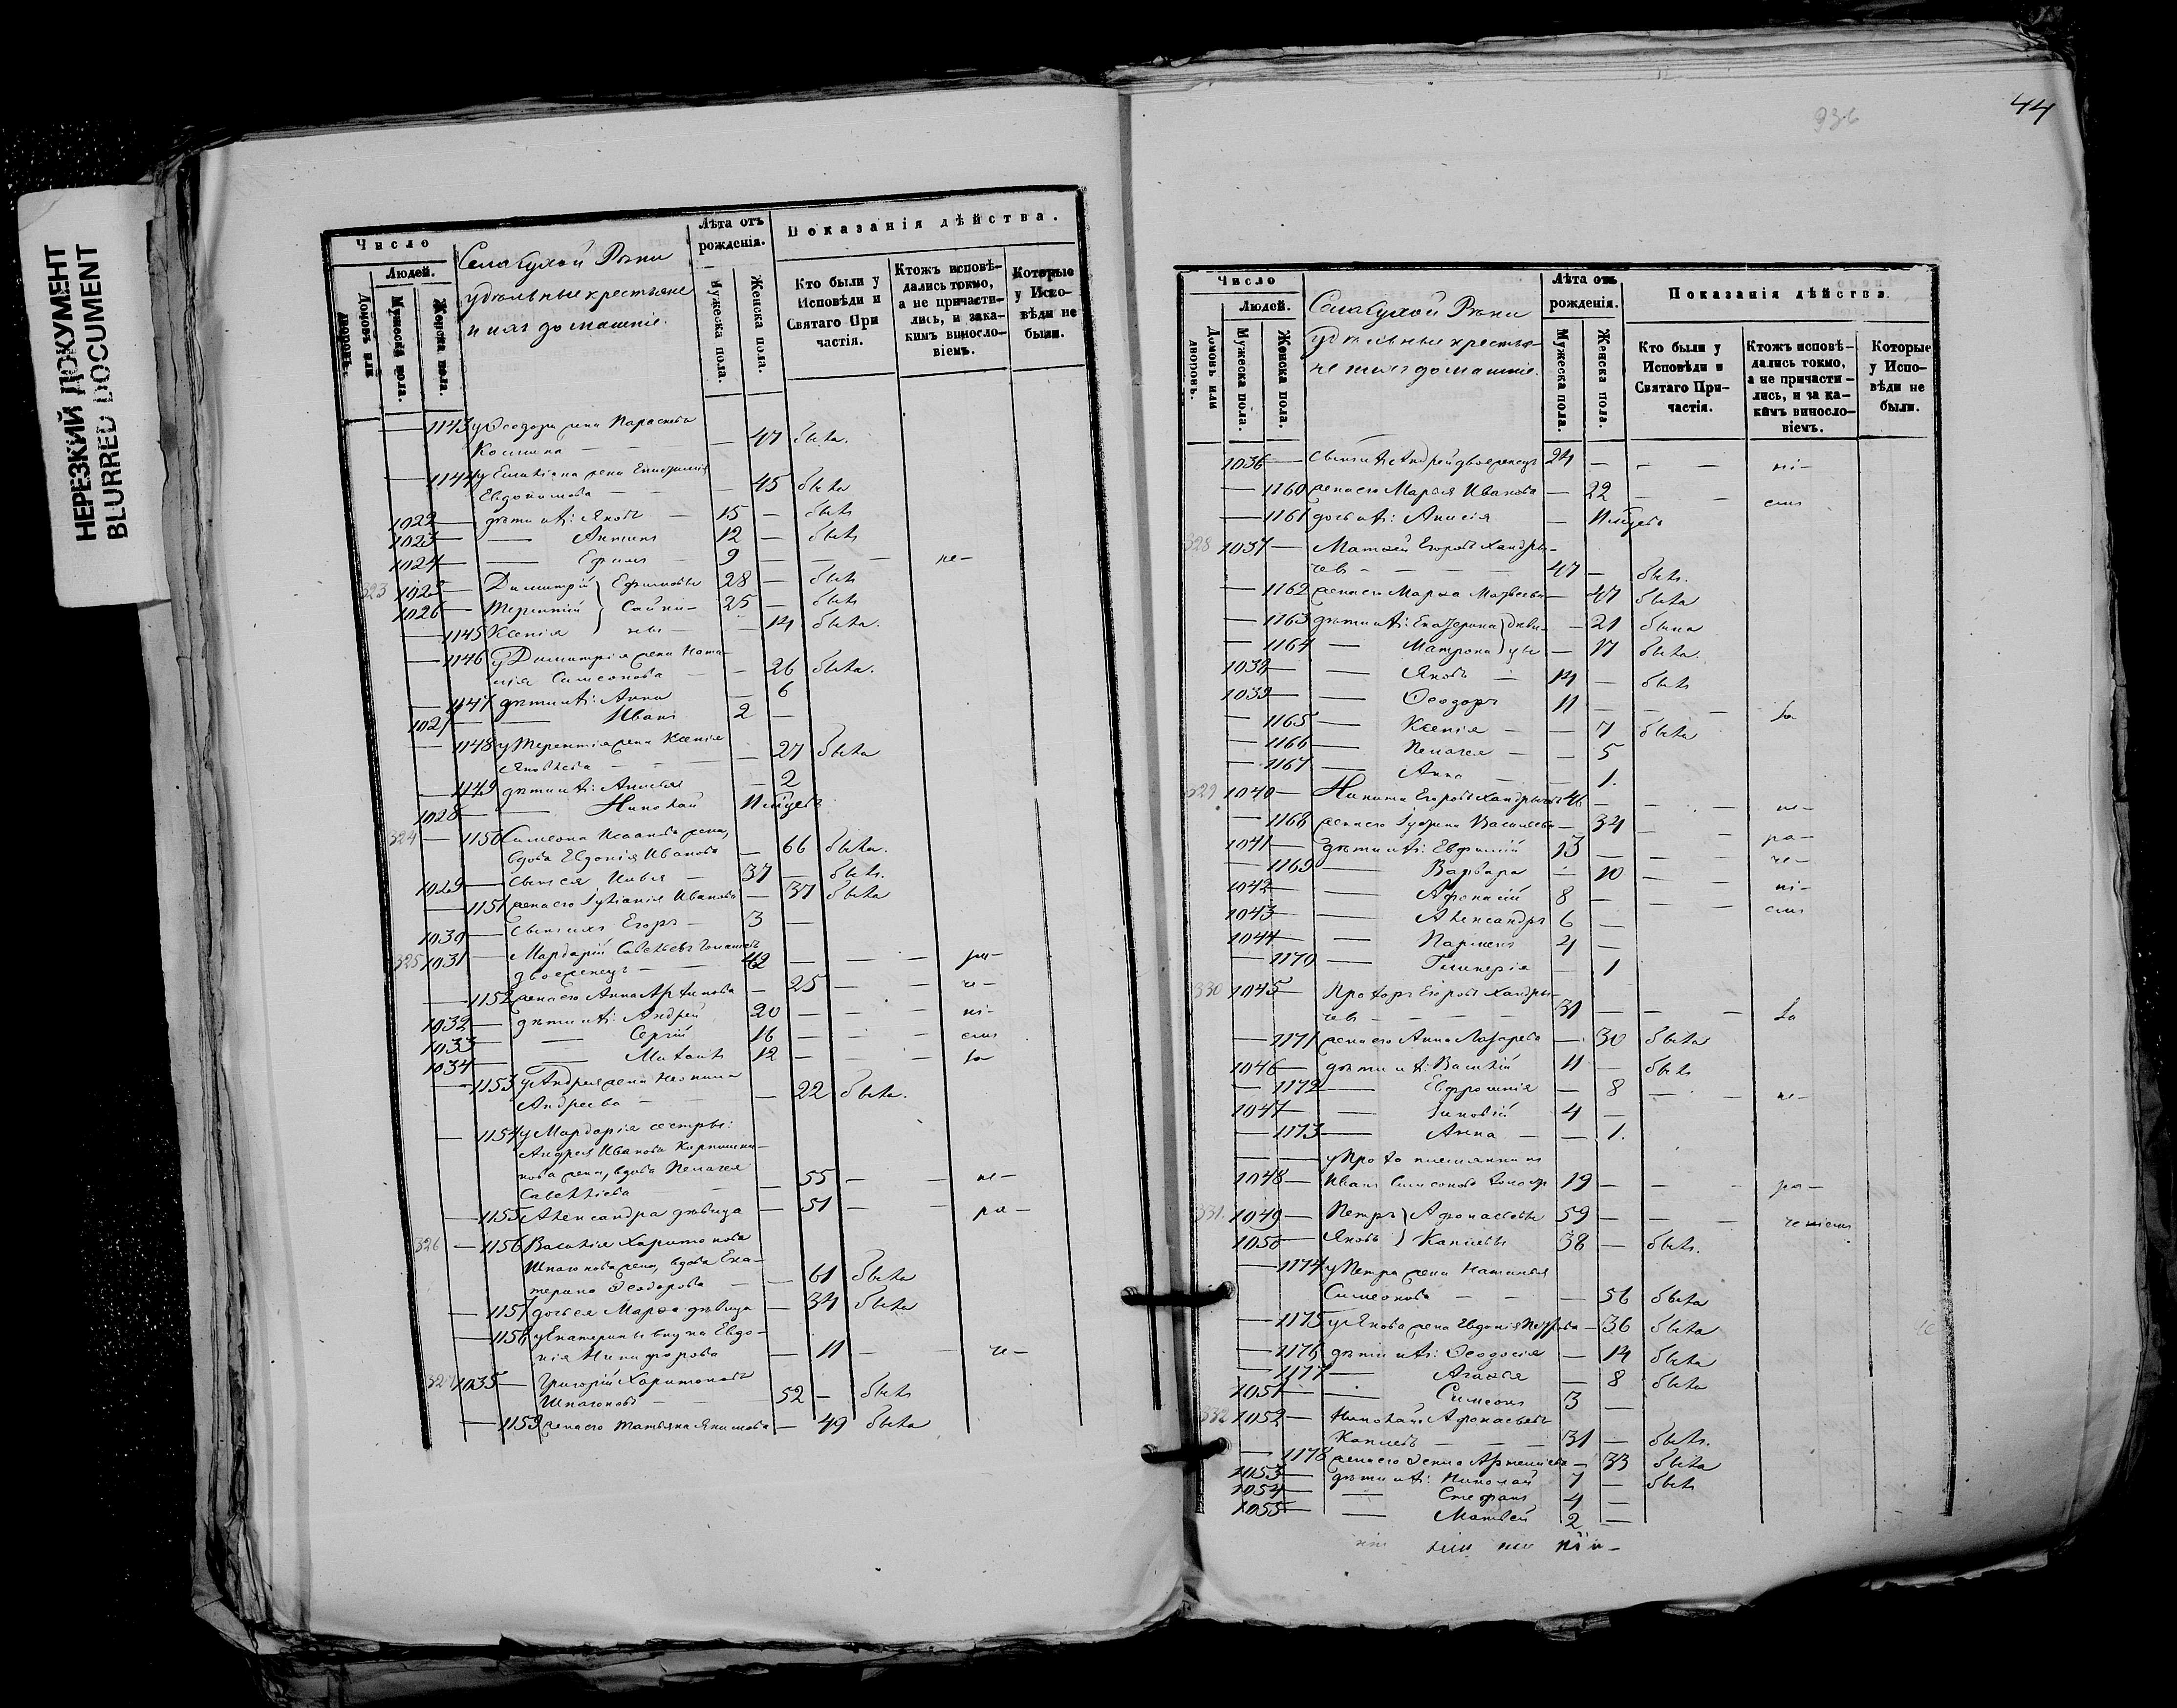 НЕРЕЗКИЙ ДОКУМЕНТ
BLURRED DOCUMENT
Число
Людей.
Домовъ или дворовъ.
Мужеска пола.
Женска пола.
Села Сухой Рѣки
удѣльные крестьяне
и ихъ домашніе.
Лѣта отъ
рожденія.
Мужеска пола.
Женска пола.
Показанія дѣйства.
Кто были у
Исповѣди и
Святаго При
частія.
Ктожъ исповѣ-
дались токмо,
а не причасти-
лись, и зака-
кимъ винносло-
віемъ.
Которые
у Испо-
вѣди не
были.
1143 у Ѳеодора жена Параскева
Косьмина — — 47 была.
1144 у Емиліана жена Епистимія
Евдокимова — — 45 была
1022 — дѣти ихъ: Яковъ — 15 — былъ
1023 — — Антипъ 12 — былъ
1024 — — Ефимъ 9 — — не-
323 1025 — Димитрій Ефимовы 28 — былъ
1026 — Терентій Сайки- 25 — былъ
1145 Ксенія ны — 14 была.
1146 у Димитрія жена Ната-
лія Симеонова — 26 была.
1147 дѣти ихъ: Анна — 6
1027 — — Иванъ 2 —
1148 у Терентія жена Ксенія
Яковлева — — 27 была
1149 дѣти ихъ: Анисья — 2
1028 — — Николай
324 — 1150 Симеона Исаакова жена,
вдова Евдокія Иванова — 66 была.
1029 — сынъ ея Илья — 37 — былъ.
1151 жена его Іуліанія Иванова — 37 была
1030 — сынъ ихъ Егоръ — 3 —
325 1031 — Мардарій Савельевъ
двоеженецъ — — 42 — — ра-
1152 жена его Анна — 25 — — че-
1032 — дѣти ихъ: Андрей 20 — — ні-
1033 — — Сергій 16 — — емъ
1034 — — Михаилъ 12 — — за
1153 у Андрея жена Неонила
Андреева — — 22 была.
1154 у Мардарія сестры:
Андрея Иванова
жена, вдова Пелагея
Савельева — 55 — — не-
1155 Александра дѣвица — 51 — ра-
326 — 1156 Василія Харитонова
Шпагонова жена, вдова Ека-
терина Ѳеодорова — — 61 была
1157 дочь ея Марѳа дѣвица — 34 была
1158 у Екатерины внука Евдо-
кія Никифорова — 11 — — че-
327 1035 — Григорій Харитоновъ
Шпагоновъ — — 52 — былъ
1159 жена его Татьяна Якимова — 49 была
936
44
Число
Людей.
Домовъ или дворовъ.
Мужеска пола.
Женска пола.
Села Сухой Рѣки
удѣльные крестья-
не и ихъ домашніе.
Лѣта отъ
рожденія.
Мужеска пола.
Женска пола.
Показанія дѣйства.
Кто были у
Исповѣди и
Святаго При-
частія.
Ктожъ исповѣ-
дались токмо,
а не причасти-
лись, и за ка-
кимъ винносло-
віемъ.
Которые
у Испо-
вѣди не
были.
1036 — сынъ ихъ Андрей двоеженецъ 24 — — — ні-
1160 жена его Марья Иванова — 22 — — емъ
1161 дочь ихъ: Анисія —
328 1037 — Матѳей Егоровъ Хандры-
чевъ — — 47 — былъ.
1162 жена его Марѳа Матвеева — 47 была
1163 дѣти ихъ: Екатерина дѣви- — 21 была
1164 — Матрона цы — 17 была.
1038 — — Яковъ — 14 — былъ
1039 — — Ѳеодоръ 11 — — — за
1165 — Ксенія — — 7 была
1166 — Пелагея — — 5
1167 — Анна — — 1.
329 1040 — Никита Егоровъ Хандрычевъ 46 — — — не-
1168 жена его Васильева — 34 — — ра-
1041 — дѣти ихъ: Евфимій 13 — — — че-
1169 — Варвара — 10 — — ні-
1042 — — Афонасій 8 — — — емъ
1043 — — Александръ 6 —
1044 — — Парменъ 4 —
1170 — Гликерія — 1
330 1045 — Прохоръ Егоровъ Хандры-
чевъ — — 31 — — — за
1171 жена его Анна Лазарева — 30 была
1046 — дѣти ихъ: Василій 11 — былъ
1172 — Евфросинія — 8 — — не-
1047 — — Зиновій 4 —
1173 — Анна — — 1.
у Прохора племянникъ
1048 — Иванъ Симеоновъ 19 — — — ра-
331 1049 — Петръ Афонасьевы 59 — — — ченіемъ
1050 — Яковъ Капцевы 38 — былъ.
1174 у Петра жена Наталья
Симеонова — — — 56 была
1175 у Якова жена Евдокія Петрова — 36 была
1176 дѣти ихъ: Ѳеодосія — 14 была
1177 — Агаѳья — 8 была
1051 — — Симеонъ 3 —
332 1052 — Николай Афонасьевъ
Капцевъ — — — 31 — былъ.
1178 жена его Артемьева — 33 была
1053 — дѣти ихъ: Николай 7 — былъ
1054 — — Стефанъ 4 —
1055 — — Матвей 2 —